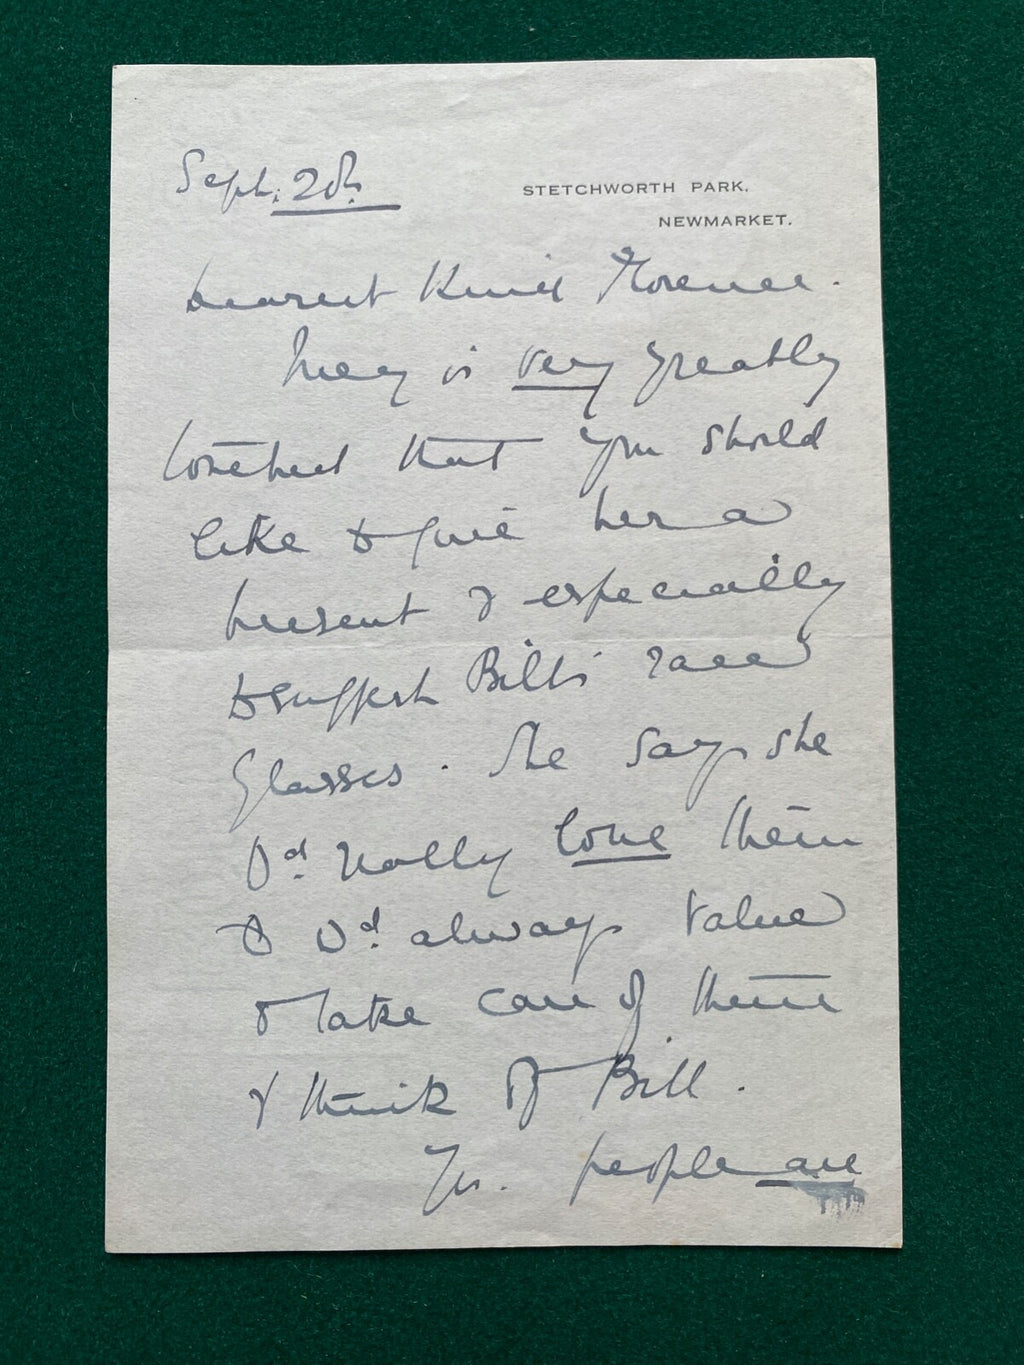 Sept. 20th.
STETCHWORTH PARK.
NEWMARKET.
Dearest Kind Florence.
Mary is very greatly
touched that you should
like to give her a
present & especially
to suggest Bill's race
glasses. She says she
wd. really love them
& wd. always value
& take care of them
& think of Bill.
Yes. people are